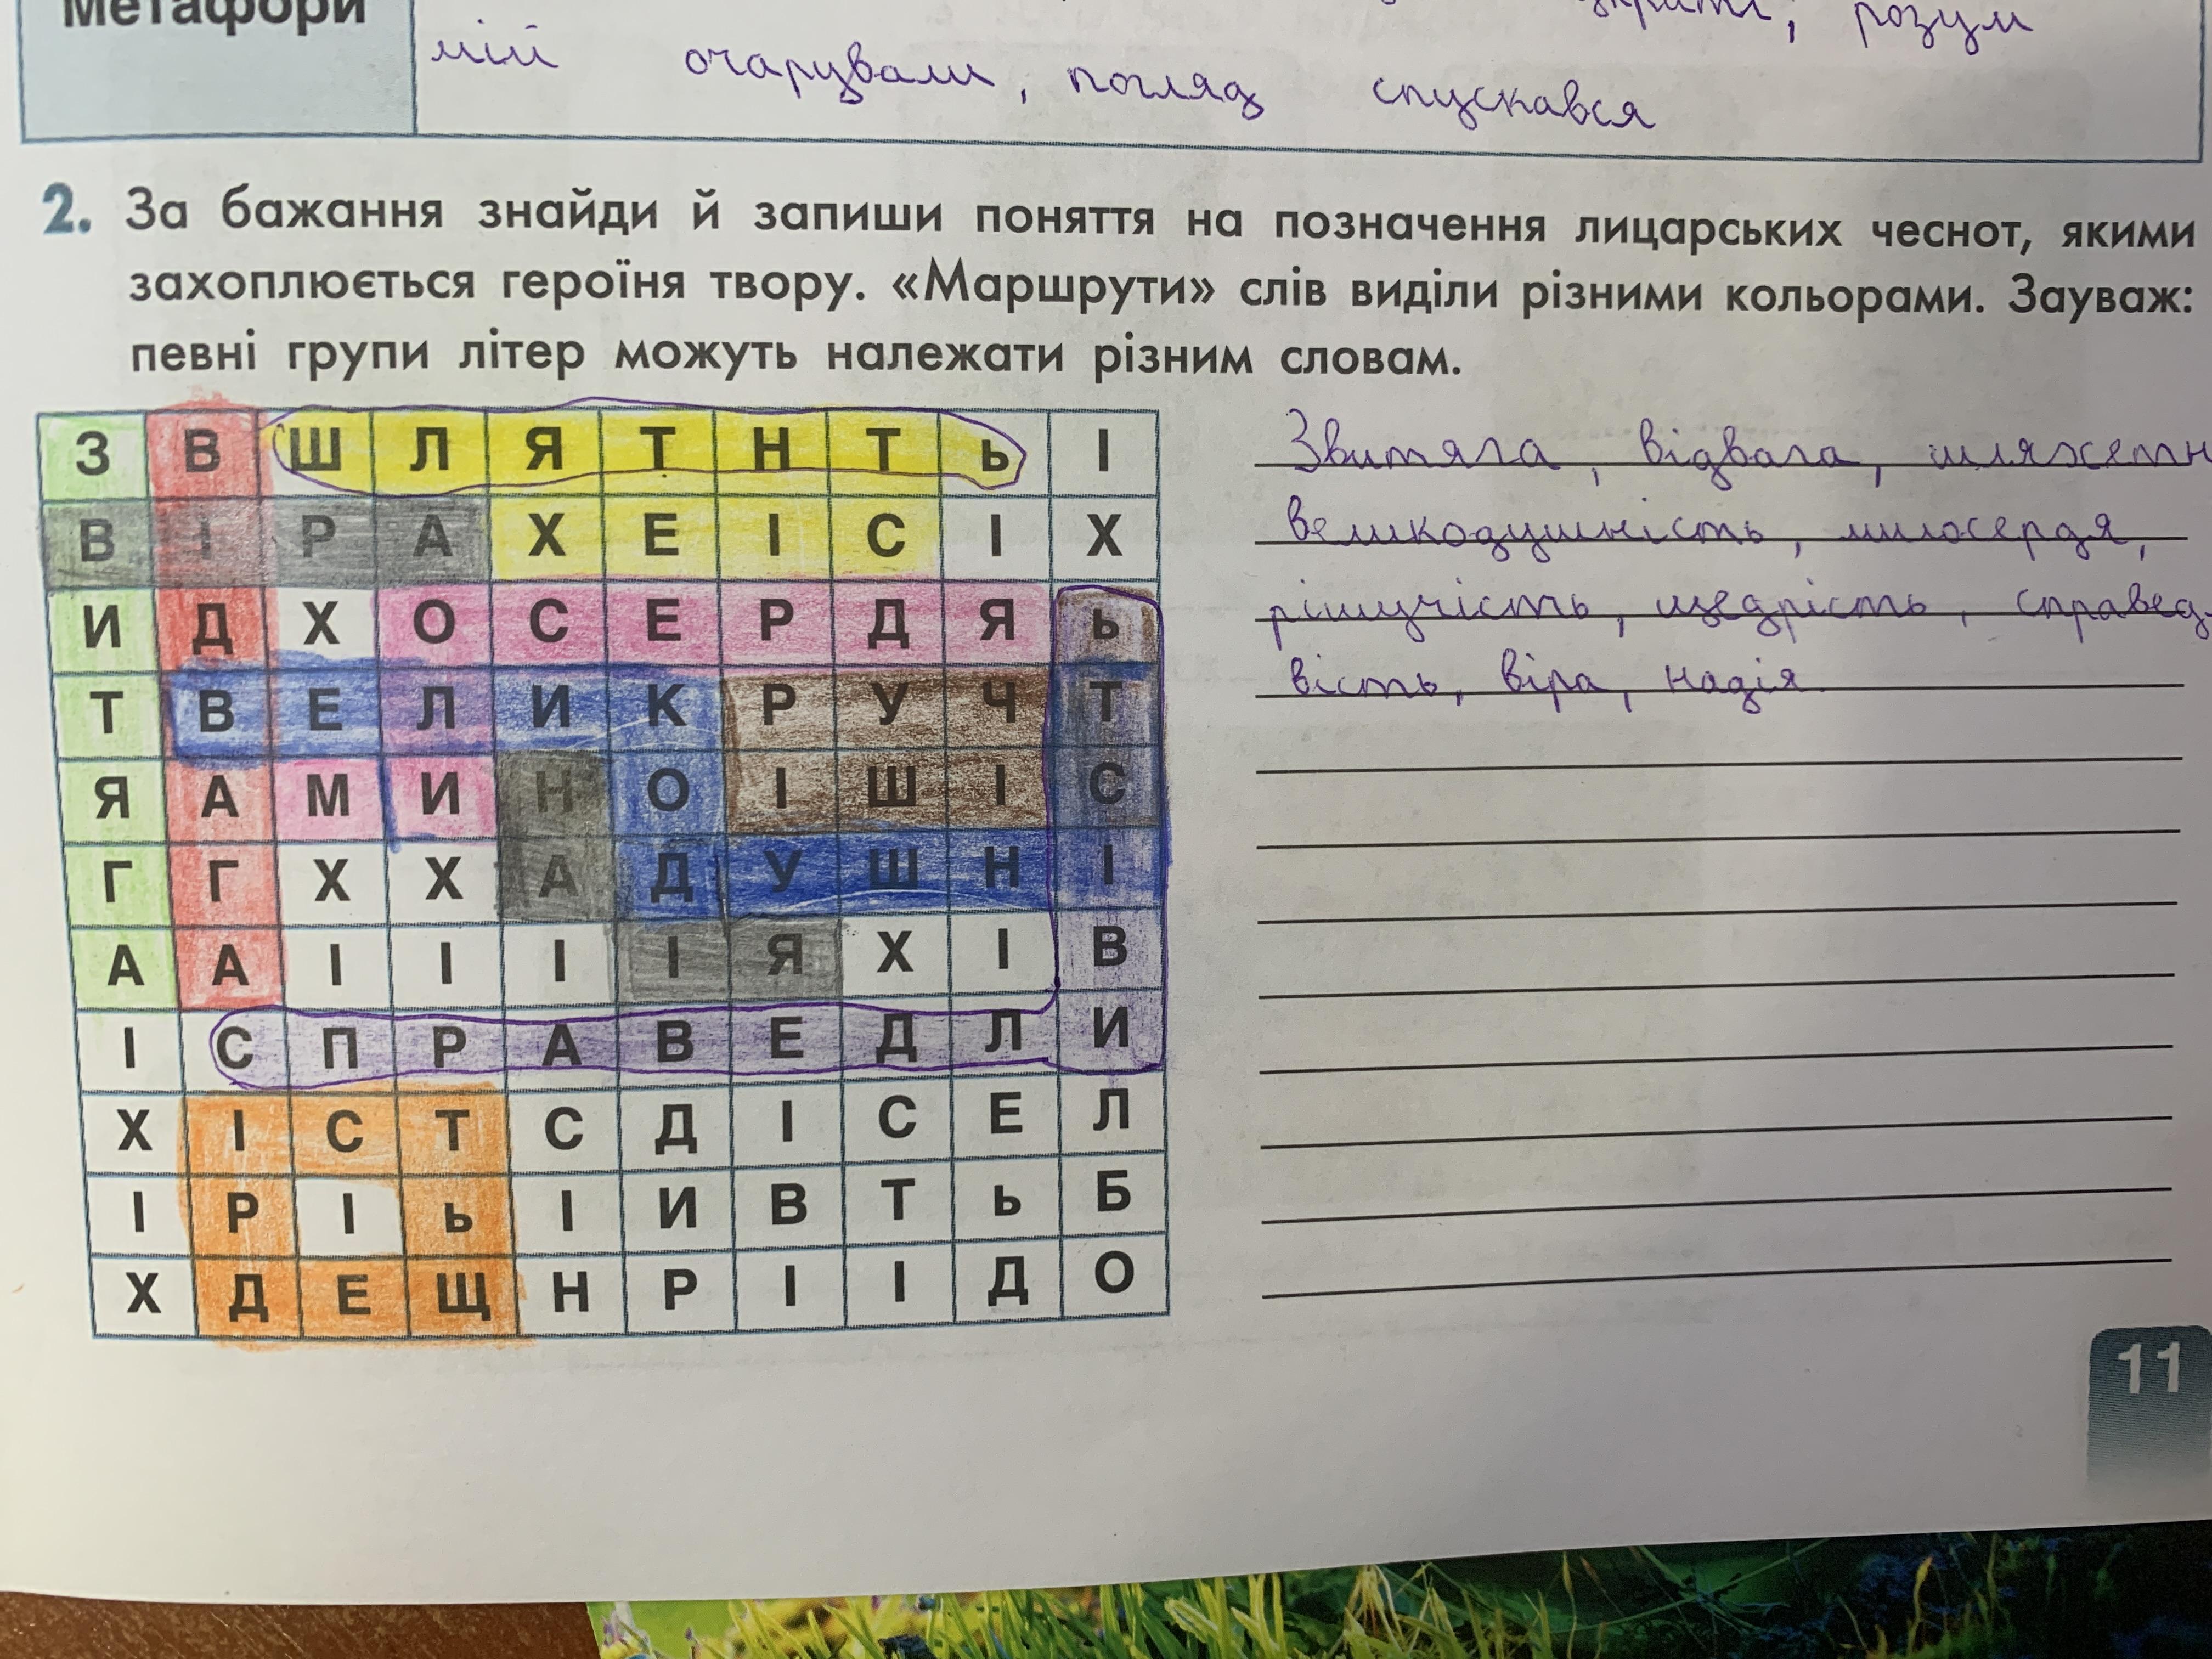 Метафори
зкриті, розум
мій очарували, погляд спускався
2. За бажання знайди й запиши поняття на позначення лицарських чеснот, якими
захоплюється героїня твору. «Маршрути» слів виділи різними кольорами. Зауваж:
певні групи літер можуть належати різним словам.
З В Ш Л Я Т Н Т Ь І
В І Р А Х Е І С І Х
И Д Х О С Е Р Д Я Ь
Т В Е Л И К Р У Ч Т
Я А М И Н О І Ш І С
Г Г Х Х А Д У Ш Н І
А А І І І І Я Х І В
І С П Р А В Е Д Л И
Х І С Т С Д І С Е Л
І Р І Ь І И В Т Ь Б
Х Д Е Щ Н Р І І Д О
Звитяга, відвага, шляжетн
великодушність, милосердя,
рішучість, щедрість, справед-
вість, віра, надія
11